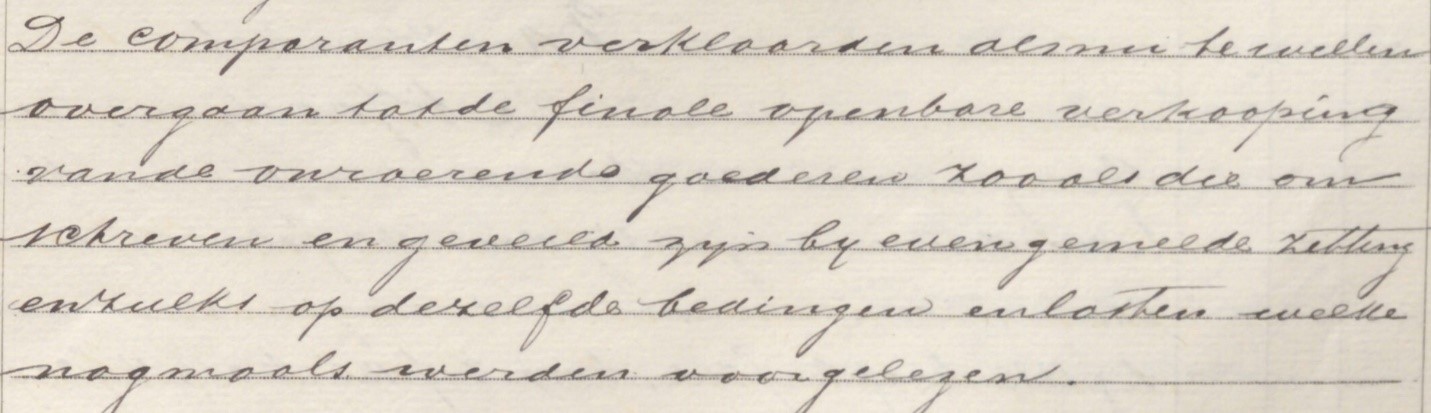 De comparanten verklaarden als nu te willen
overgaan tot de finale openbare verkooping
van de onroerende goederen zooals die om
schreven en geveild zijn bij evengemelde zitting
en zulks op dezelfde bedingen en lasten welke
nogmaals werden voorgelezen.